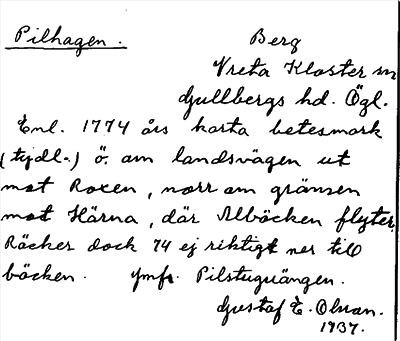 Pilhagen. Berg
Vreta Kloster sn
Gullbergs hd. Ögl.
Enl. 1774 års karta betesmark
(tydl.) ö. om landsvägen ut
mot Roxen, norr om gränsen
mot Härna, där Albäcken flyter.
Räcker dock 74 ej riktigt ner till
bäcken. Jmfr. Pilstuguängen.
Gustaf E. Olsson.
1937.